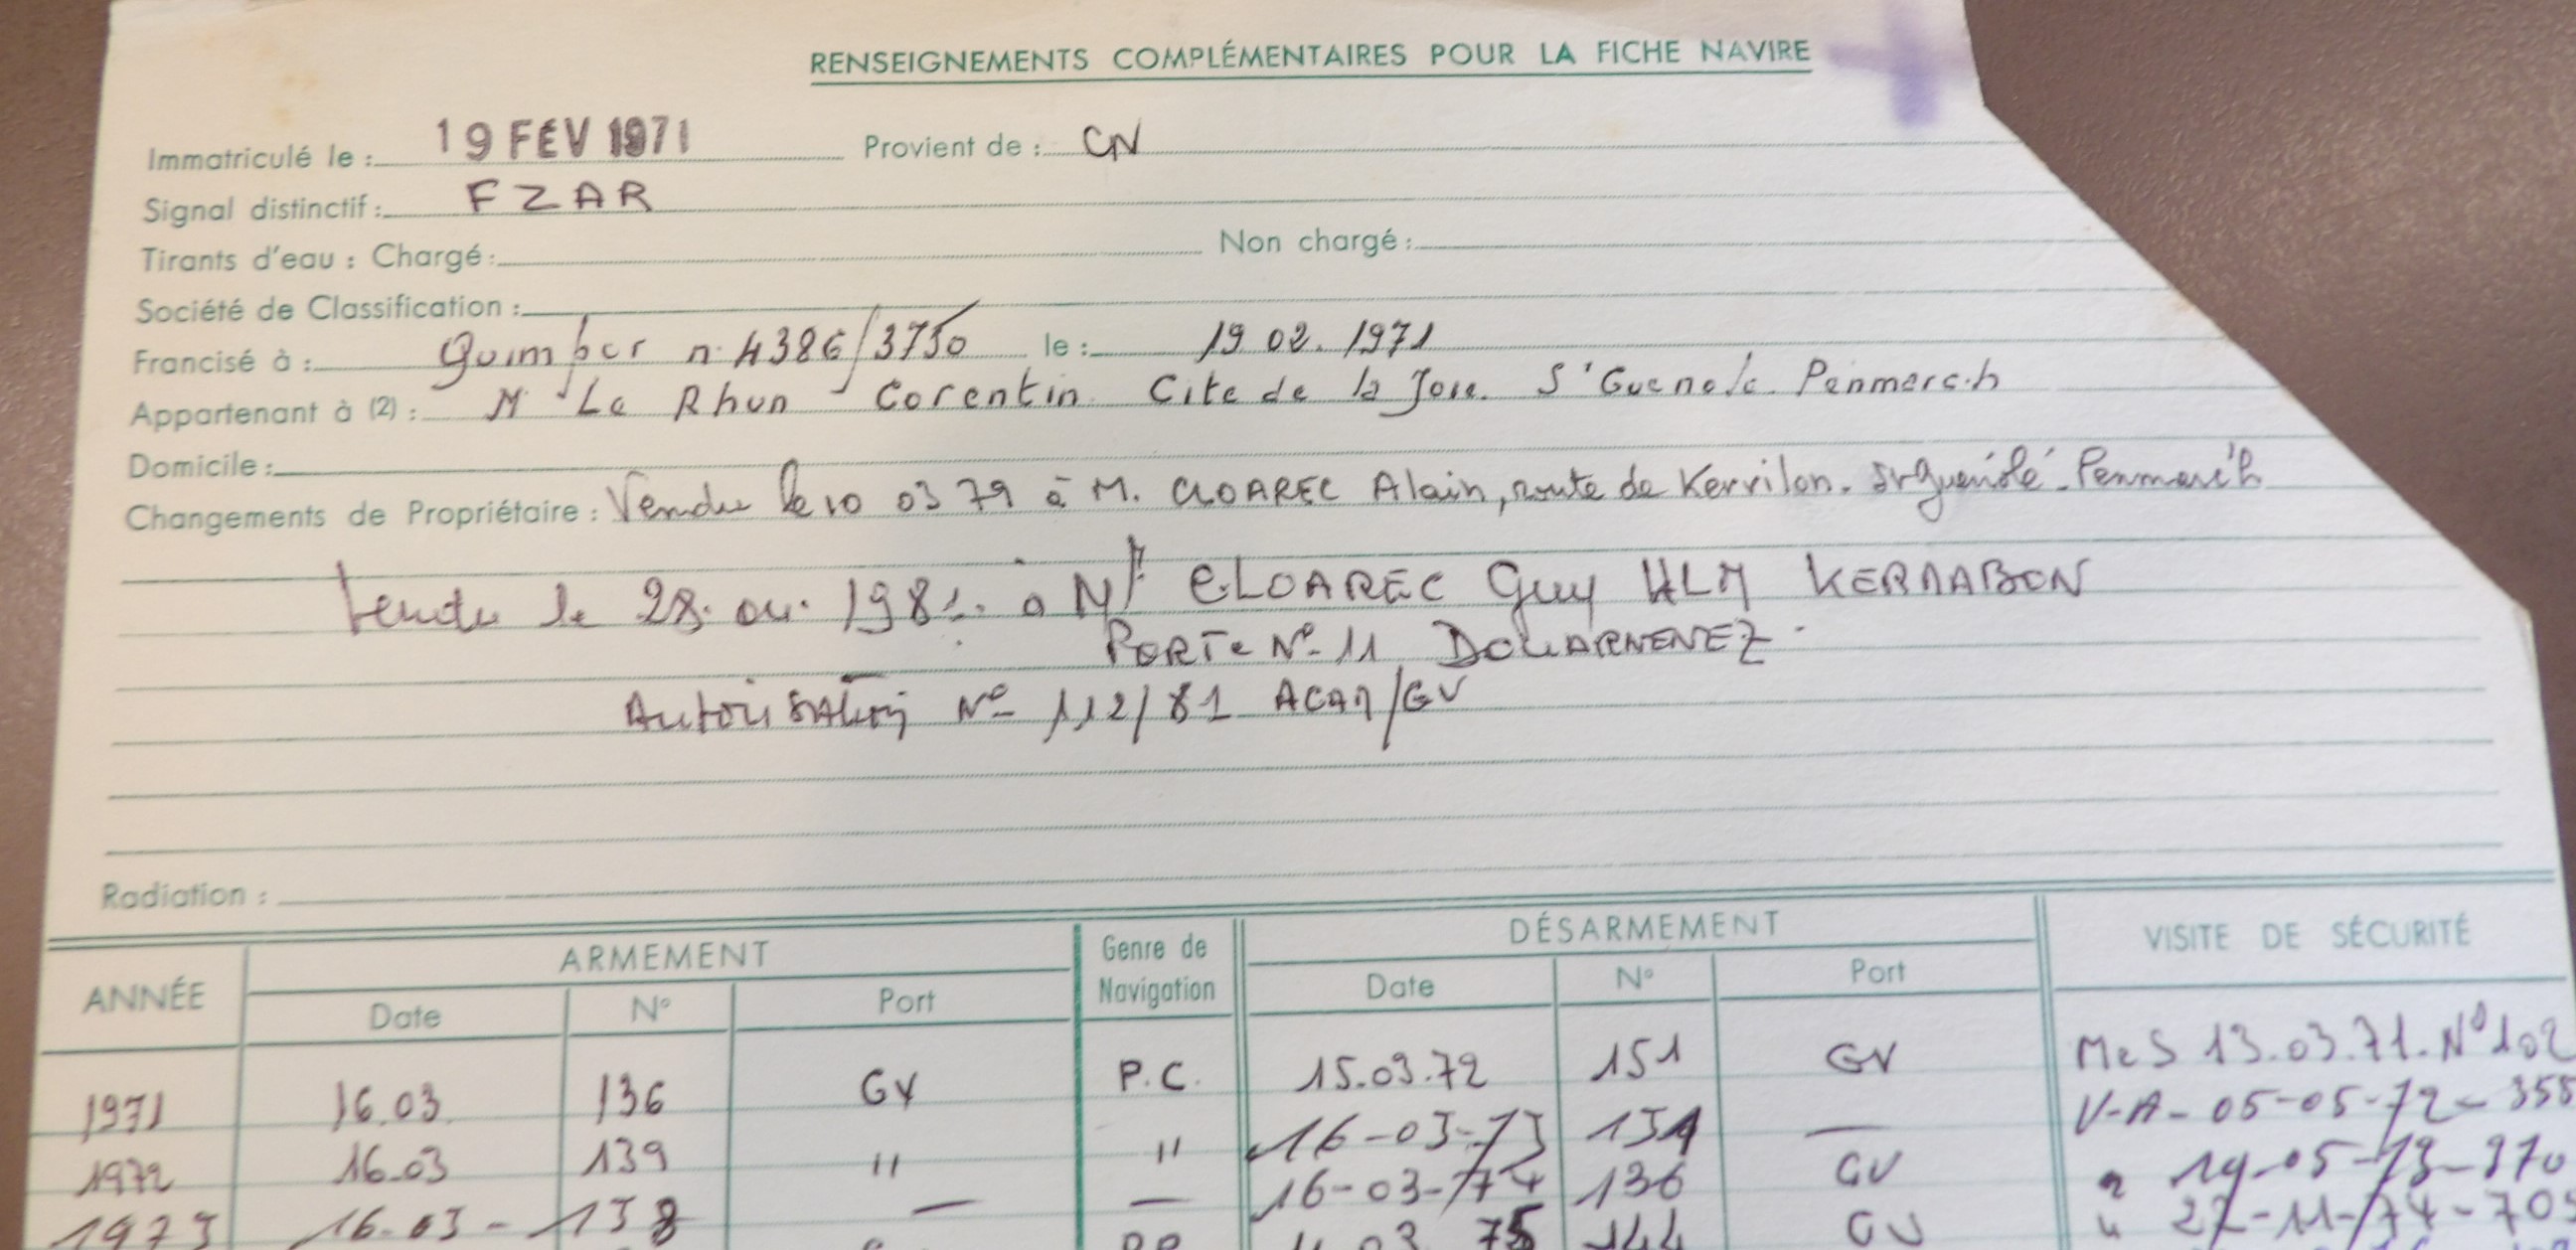 RENSEIGNEMENTS COMPLÉMENTAIRES POUR LA FICHE NAVIRE
Immatriculé le : 19 FEV 1971 Provient de : CN
Signal distinctif : FZAR
Tirants d'eau : Chargé : Non chargé :
Société de Classification :
Francisé à : Quimper n° 4386/3750 le : 19 02. 1971
Appartenant à (2) : M Le Rhun Corentin. Cite de la Joie. St Guenole. Penmarc.h
Domicile :
Changements de Propriétaire : Vendu le 10 03 79 à M. CLOAREC Alain, route de Kervilon. St Guénolé. Penmarc'h
Vendu le 28. 04. 1981. à Mr CLOAREC Guy HLM KERMABON
PORTE N° 11 DOUARNENEZ.
Autorisation N° 112/81 ACAM/GV
Radiation :
ANNÉE ARMEMENT Genre de Navigation DÉSARMEMENT VISITE DE SÉCURITÉ
Date N° Port Date N° Port
1971 16.03 136 GV P.C. 15.03.72 151 GV MeS 13.03.71. N° 102
1972 16.03 139 " " 16-03-73 131 — V-A- 05-05-72- 355
1973 16.03 - 138 — — 16-03-74 136 GV " 19-05-73-370
75 144 GV " 27-11-74-70